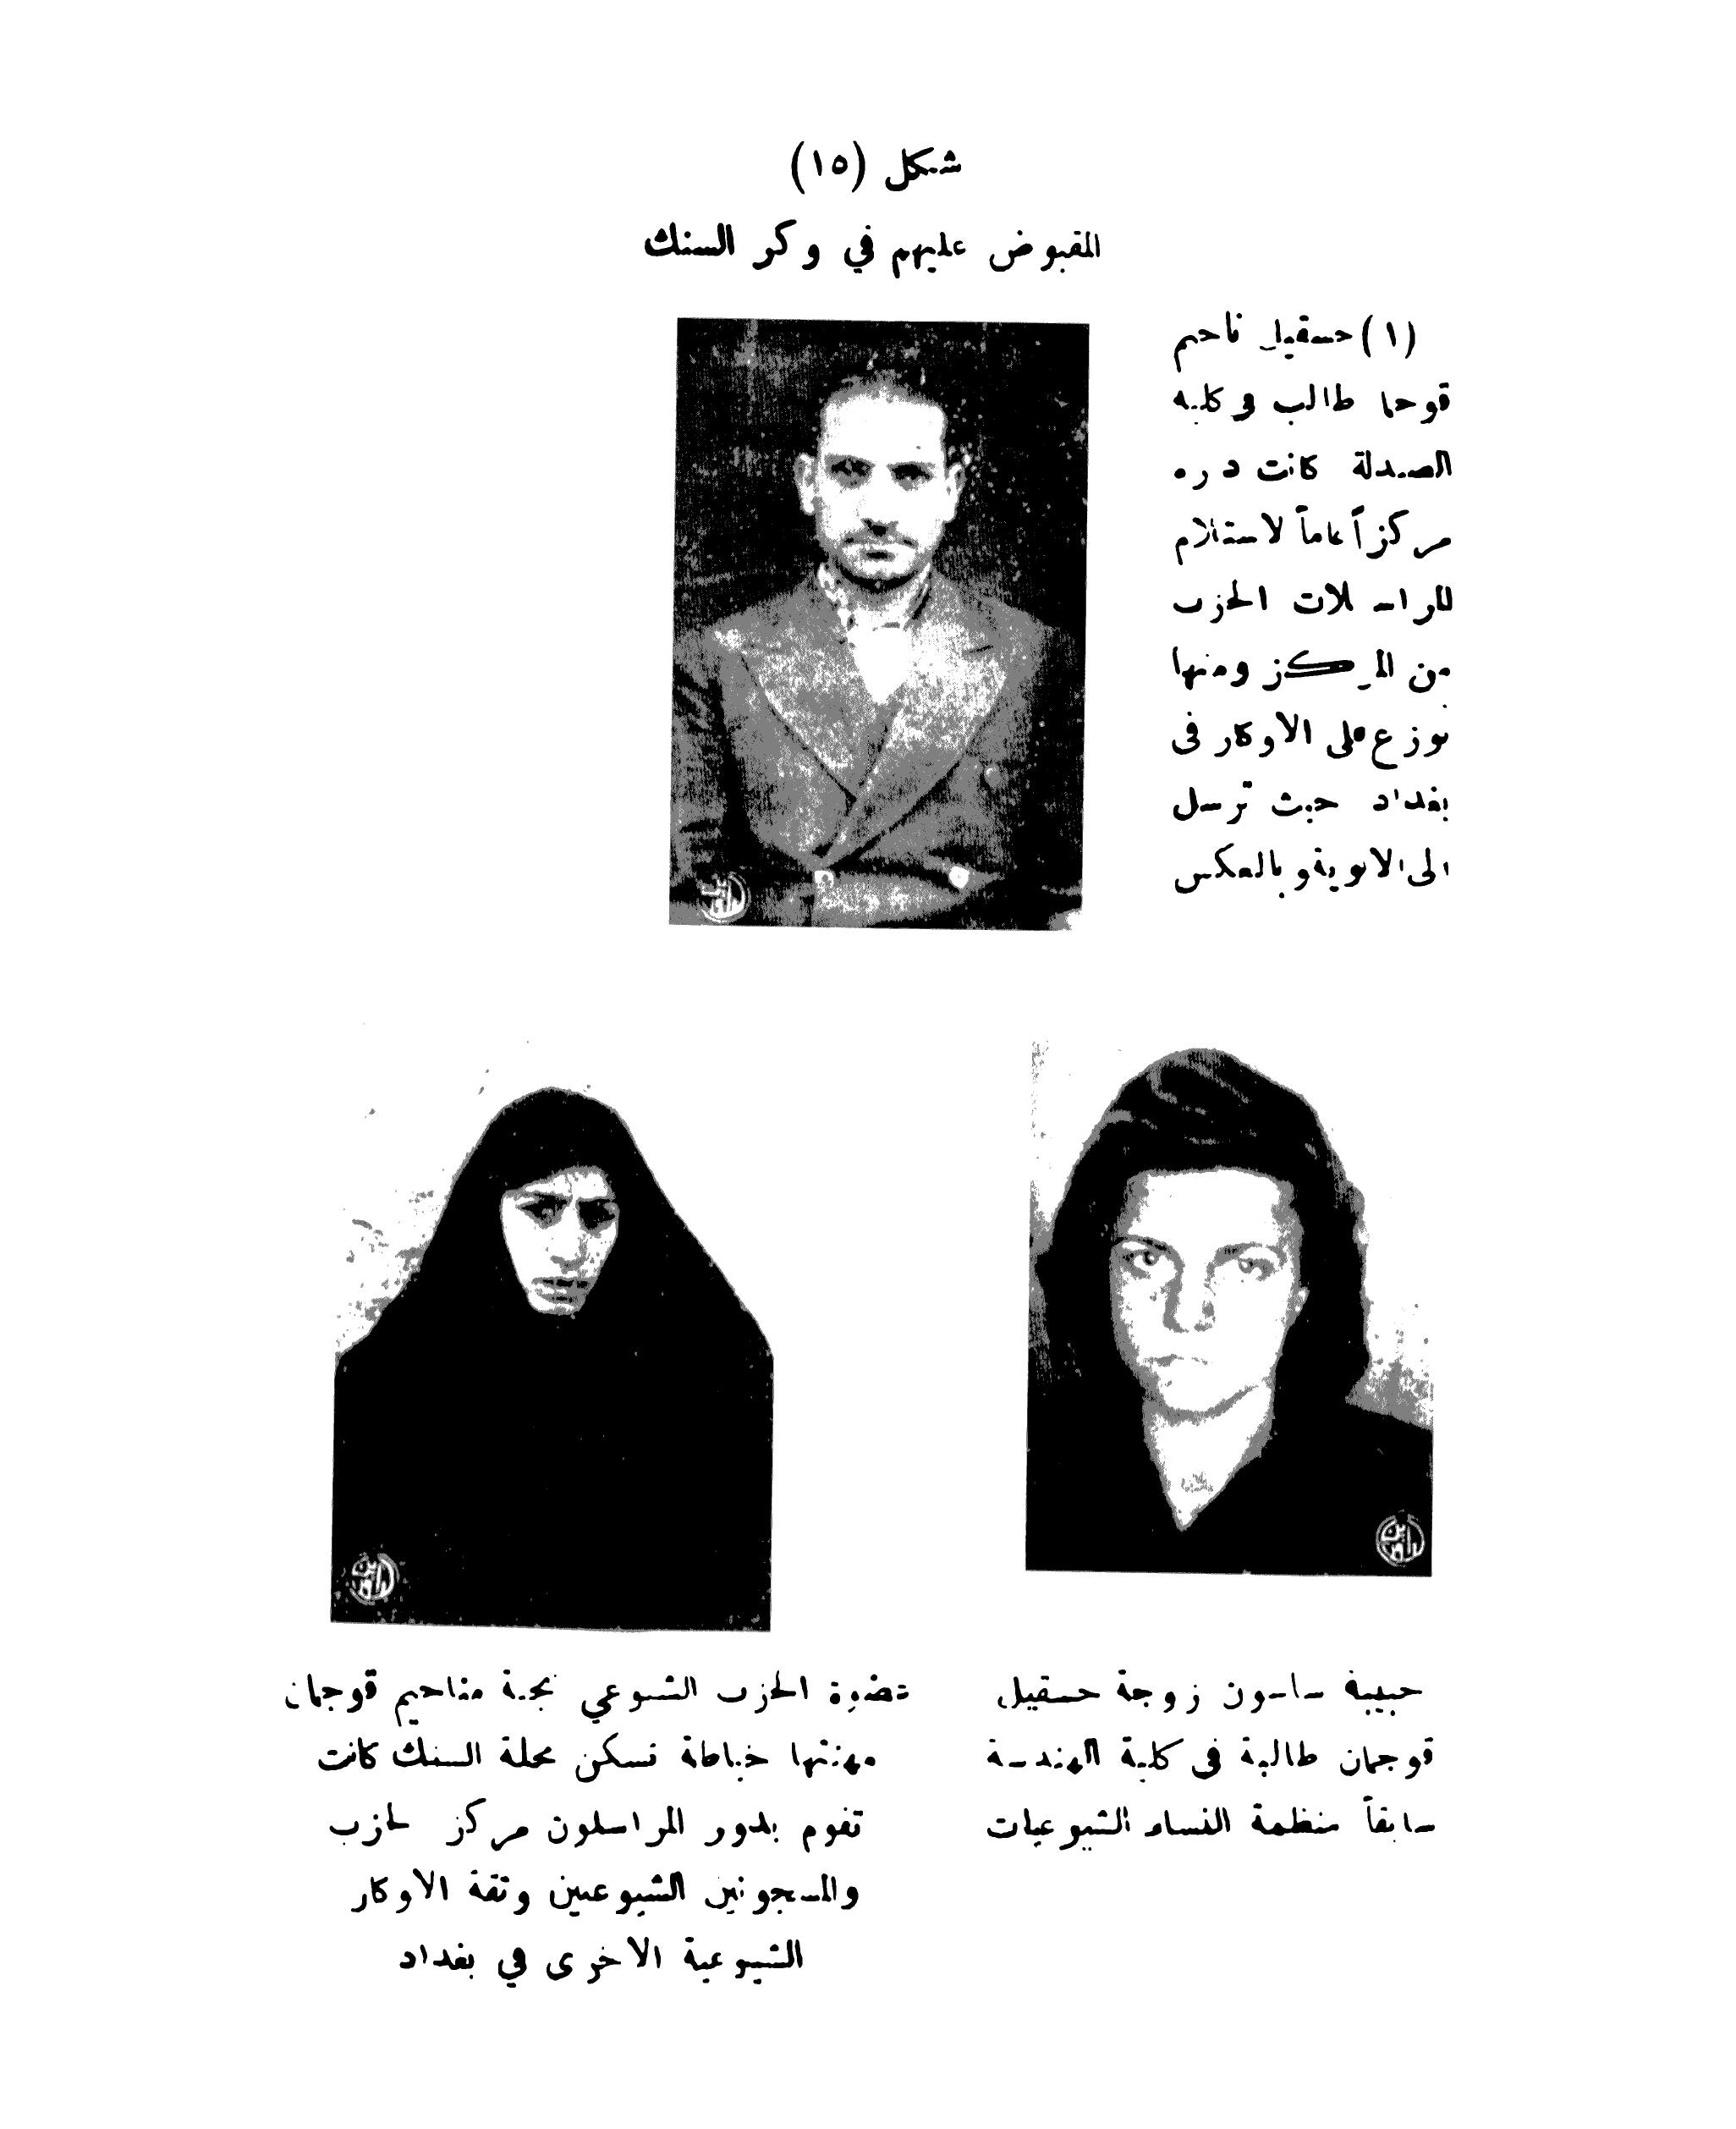 شكل (١٥)
المقبوض عليهم في وكر السنك
(١) حسقيل ناحيم
قوحما طالب في كلية
الصيدلة كانت دره
مركزاً عاماً لاستلام
المراسلات الحزب
من المركز ومنها
توزع على الاوكار في
بغداد حيث ترسل
الى الالوية وبالعكس
حبيبة ساسون زوجة حسقيل
قوجمان طالبة في كلية الهندسة
سابقاً منظمة النساء الشيوعيات
عضوة الحزب الشيوعي نجية مناحيم قوجمان
مهنتها خياطة تسكن محلة السنك كانت
تقوم بدور المراسلون مركز لحزب
والمسجونين الشيوعيين وثقة الاوكار
الشيوعية الاخرى في بغداد